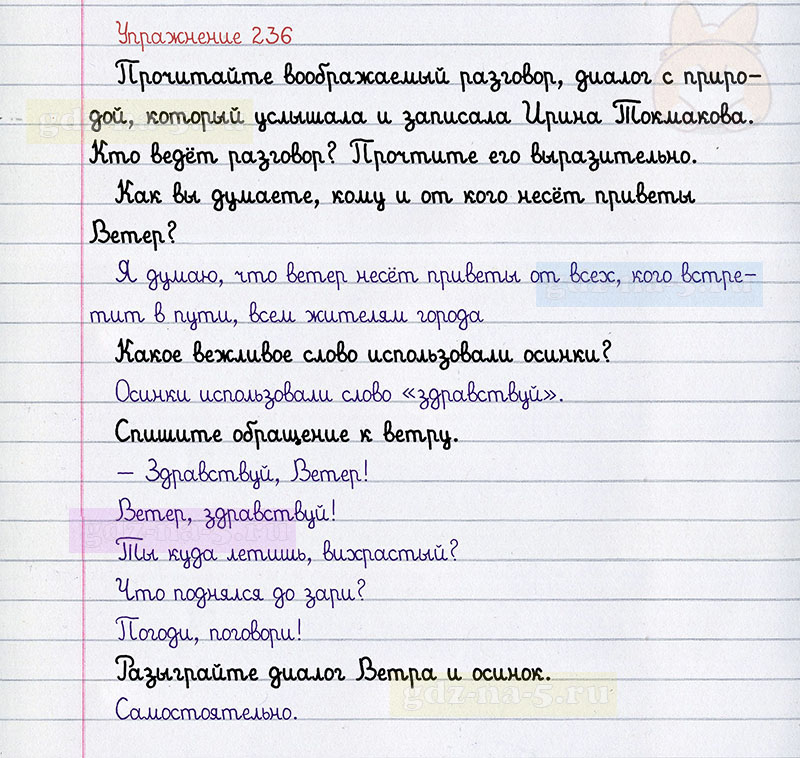 Упражнение 236
Прочитайте воображаемый разговор, диалог с приро-
дой, который услышала и записала Ирина Токмакова.
Кто ведёт разговор? Прочтите его выразительно.
Как вы думаете, кому и от кого несёт приветы
Ветер?
Я думаю, что ветер несёт приветы от всех, кого встре-
тит в пути, всем жителям города
Какое вежливое слово использовали осинки?
Осинки использовали слово «здравствуй».
Спишите обращение к ветру.
– Здравствуй, Ветер!
Ветер, здравствуй!
Ты куда летишь, вихрастый?
Что поднялся до зари?
Погоди, поговори!
Разыграйте диалог Ветра и осинок.
gdz-na-5.ru
Самостоятельно.